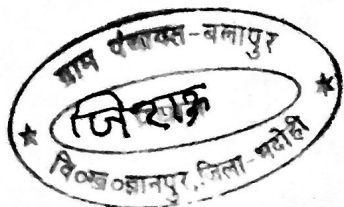 ग्राम पंचायत-बलापुर
वि०ख०ज्ञानपुर, जिला-भदोही